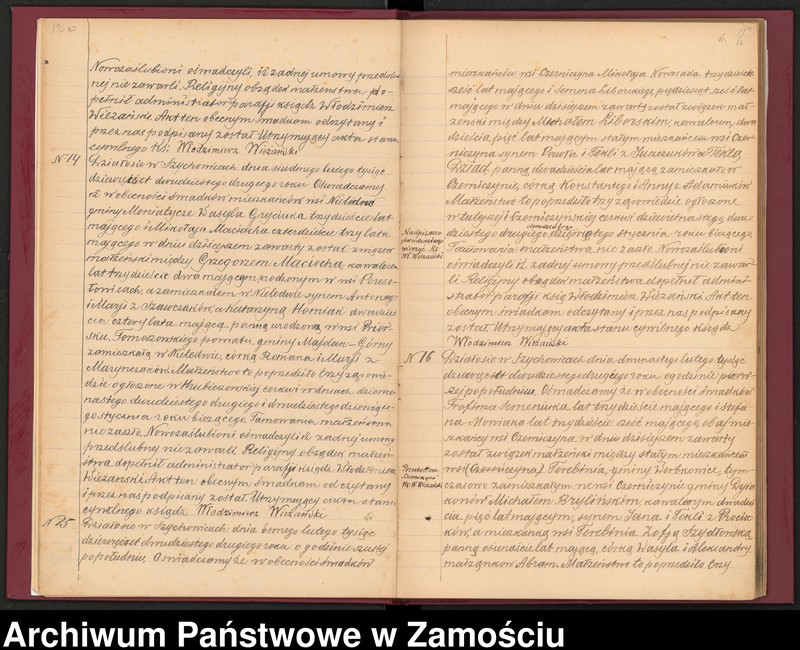 Nowozaślubieni oświadczyli, iż żadnej umowy przedślub
nej nie zawarli. Religijny obrządek małżeństwa do-
pełnił administrator parafji ksiądz Włodzimierz
Wieżański. Akt ten obecnym świadkom odczytany i
przez nas podpisany został. Utrzymujący akta stanu
cywilnego Ks: Włodzimierz Wieżański
N 14
Działo się w Szychowicach dnia siudmego lutego tysiąc
dziewięćset dwudziestego drugiego roku. Oświadczamy
iż w obecności świadków mieszkańców wsi Nieledwi
gminy Moniatycze Wasyla Gryciuka trzydzieście lat
mającego i Mikołaja Maciocha czterdzieście trzy lata
mającego w dniu dzisiejszem zawarty został związek
małżeński między Grzegorzem Maciocha, kawalerem
lat trzydzieście dwa mającym rodzonym w wsi Pereso-
łowicach, a zamieszkałem w Nieledwie synem Antonego
i Marji z Szawczuków, a Katarzyną Homiak dwadzieś
cia cztery lata mającą panną urodzoną w wsi Prior-
sku, Tomaszowskiego powiatu, gminy Majdan-Górny
zamieszkałą w Nieledwie, córką Romana i Marji z
Marynczaków. Małżeństwo to poprzedziło trzy zapowie-
dzie ogłoszone w Hrubieszowskiej cerkwi w dniach dziewię
nastego dwudziestego drugiego i dwudziestego dziewiąte-
go stycznia roku bieżącego. Tamowania małżeństwa
nie zaszło. Nowozaślubieni oświadczyli iż żadnej umowy
przedślubnej nie zawarli. Religijny obrządek małżeń-
stwa dopełnił administrator parafji ksiądz Włodzimierz
Wieżański. Akt ten obecnym świadkom odczytany
i przez nas podpisany został. Utrzymujący akta stanu
cywilnego ksiądz Włodzimierz Wieżański
N 15
Działo się w Szychowicach, dnia ósmego lutego tysiąc
dziewięćset dwudziestego drugiego roku o godzinie szustej
popołudniu. Oświadczamy że w obecności świadków
6.
mieszkańców wsi Czerniczyna Mikołaja Nowosada trzydzieście
sześć lat mającego i Semena Liborskiego, pięćdziesiąt sześć lat
mającego w dniu dzisiejszem zawarty został związek mał-
żeński między Michałem Liborskim, kawalerem, dwa
dzieścia pięć lat mającym stałym mieszkańcem wsi Czer-
niczyna synem Pawła i Tekli z Juszczuków a Teklą
Dziad, panną dwadzieścia lat mającą zamieszkałą w
Czerniczynie, córką Konstantego i Anny z Adamiuków
Małżeństwo to poprzedziło trzy zapowiedzie ogłoszone
w tutejszej Czerniczyńskiej cerkwi dziewiętnastego, dwu
dziestego drugiego dziewiątego stycznia roku bieżącego
dwudziestego
Nadpisano
dwudziestego
wierzę. Ks.
Wł. Wieżański
Tamowania małżeństwa nie zaszło. Nowozaślubieni
oświadczyli iż żadnej umowy przedślubnej nie zawar-
li. Religijny obrządek małżeństwa dopełnił admini-
strator parafji ksiądz Włodzimierz Wieżański. Akt ten
obecnym świadkom odczytany i przez nas podpisany
został. Utrzymujący akta stanu cywilnego ksiądz
Włodzimierz Wieżański
N 16
Działo się w Szychowicach dnia dwunastego lutego tysiąc
dziewięćset dwudziestego drugiego roku o godzinie pierw-
szej popołudniu. Oświadczamy że w obecności świadków
Trofima Semeniuka lat trzydzieście mającego i Stefa
na Mowiaka lat trzydzieście sześć mającego, obaj mie-
szkańcy wsi Czerniczyna w dniu dzisiejszem zawarty
został związek małżeński między stałym mieszkańcem
wsi (Czerniczyna) Terebinia, gminy Werbkowice, tym-
Przekreślono
Czerniczyna
Ks. W. Wieżański
czasowo zamieszkałym we wsi Czerniczynie gminy Dyja
konów Michałem Brylińskim, kawalerem dwadzieś
cia pięć lat mającym, synem Jana i Tekli z Procia
ków, a mieszkanką wsi Terebinia Zofją Szydłowską,
panną osiemnaście lat mającą, córką Wasyla i Aleksandry
małżonków Abram. Małżeństwo to poprzedziło trzy
Archiwum Państwowe w Zamościu